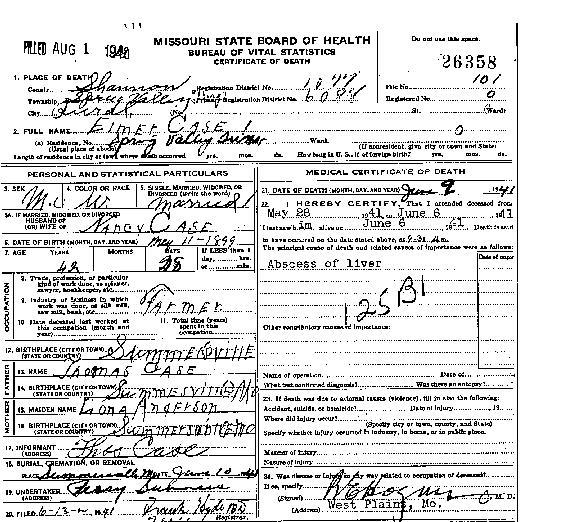 FILED AUG 1 1941
MISSOURI STATE BOARD OF HEALTH
BUREAU OF VITAL STATISTICS
CERTIFICATE OF DEATH
Do not use this space.
26358
1. PLACE OF DEATH
County Shannon
Registration District No.
File No. 101
Township Spring Valley
Registration District No.
Registered No. 0
City
St.
Ward)
2. FULL NAME Elmer Case
(a) Residence, No. Spring Valley
Ward.
(Usual place of abode)
(If nonresident, give city or town and State)
Length of residence in city or town where death occurred yrs. mos. ds. How long in U. S., if of foreign birth? yrs. mos. ds.
PERSONAL AND STATISTICAL PARTICULARS
3. SEX M
4. COLOR OR RACE W
5. SINGLE, MARRIED, WIDOWED, OR DIVORCED
Married
5A. IF MARRIED, WIDOWED, OR DIVORCED
HUSBAND OF
(OR) WIFE OF Nancy Case
6. DATE OF BIRTH (MONTH, DAY, AND YEAR) May 11-1899
7. AGE YEARS MONTHS DAYS If LESS than 1 day, hrs. or min.
42 28
OCCUPATION
8. Trade, profession, or particular kind of work done, as spinner, sawyer, bookkeeper, etc.
9. Industry or business in which work was done, as silk mill, saw mill, bank, etc.
Farmer
10. Date deceased last worked at this occupation (month and year)
11. Total time (years) spent in this occupation
12. BIRTHPLACE (CITY OR TOWN)
(STATE OR COUNTRY) Summersville
FATHER
13. NAME Thomas Case
14. BIRTHPLACE (CITY OR TOWN)
(STATE OR COUNTRY) Summersville Mo
MOTHER
15. MAIDEN NAME Anderson
16. BIRTHPLACE (CITY OR TOWN)
(STATE OR COUNTRY) Summersville Mo
17. INFORMANT Thos Case
(ADDRESS)
18. BURIAL, CREMATION, OR REMOVAL
Summersville Mo June 10 41
19. UNDERTAKER
(ADDRESS)
20. FILED 6-13- 41
Registrar.
MEDICAL CERTIFICATE OF DEATH
21. DATE OF DEATH (MONTH, DAY, AND YEAR) June 9 1941
22. I HEREBY CERTIFY, That I attended deceased from
May 26 1941 June 6
I last saw him June 6
to have occurred on the date stated above, at
The principal cause of death and related causes of importance were as follows:
Date of onset
Abscess of liver
125 B1
Other contributory causes of importance:
Name of operation Date of
What test confirmed diagnosis? Was there an autopsy?
23. If death was due to external causes (violence), fill in also the following:
Accident, suicide, or homicide? Date of injury 19
Where did injury occur?
(Specify city or town, county, and State)
Specify whether injury occurred in industry, in home, or in public place.
Manner of injury
Nature of injury
24. Was disease or injury in any way related to occupation of deceased?
If so, specify
(Signed)
(Address) West Plains, Mo.